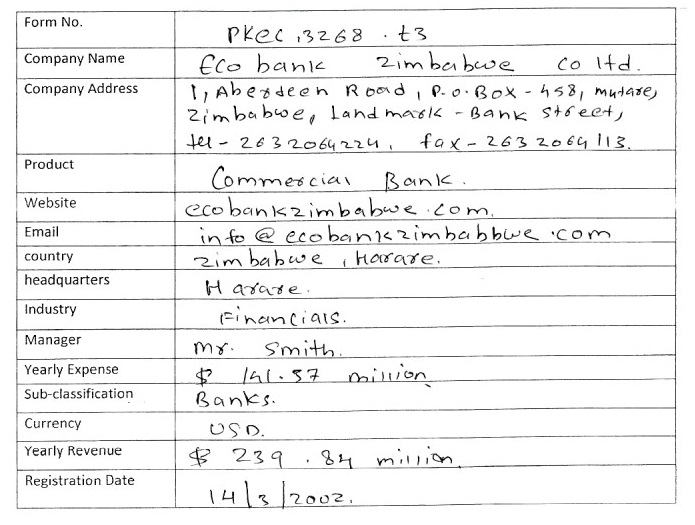 Form No. PKEC,3268 . t3
Company Name Eco bank Zimbabwe co ltd.
Company Address 1, Aberdeen Road, P.O.Box - 458, mutare,
Zimbabwe, Landmark - Bank Street,
tel - 2632064224, fax - 2632064113.
Product Commercial Bank.
Website ecobankzimbabwe.com.
Email info@ecobankzimbabbwe.com
country Zimbabwe, Harare.
headquarters Harare.
Industry Financials.
Manager Mr. Smith.
Yearly Expense $ 141.57 million
Sub-classification Banks.
Currency USD.
Yearly Revenue $ 239.84 million.
Registration Date 14/3/2002.